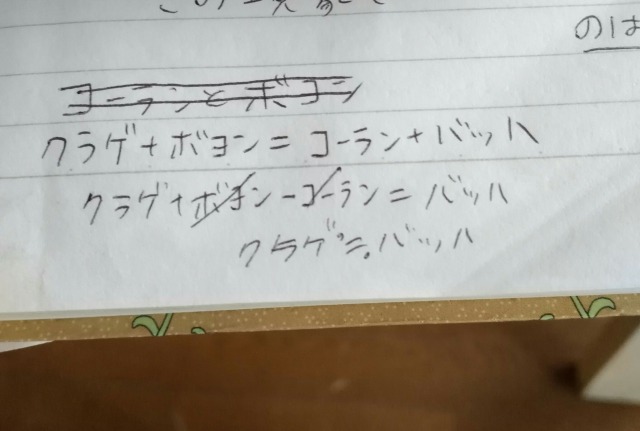 のは
コーランとボヨン
クラゲ+ボヨン=コーラン+バッハ
クラゲ+ボヨン-コーラン=バッハ
クラゲ≒バッハ